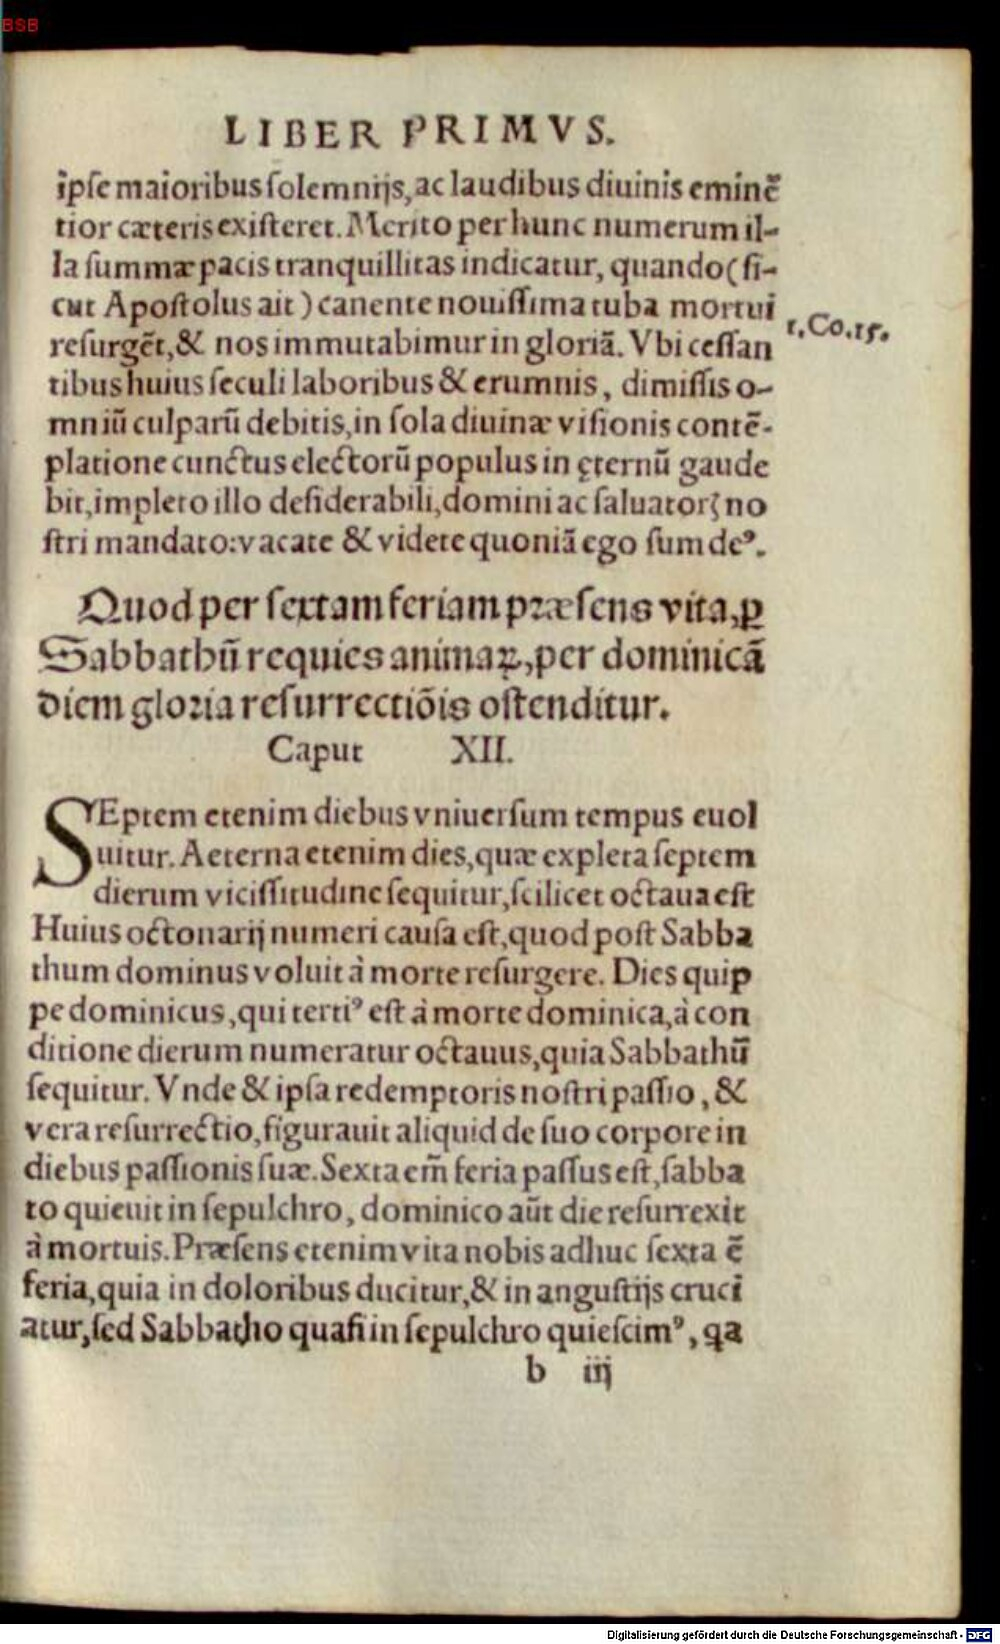 BSB
LIBER PRIMVS.
ipſe maioribus ſolemnijs, ac laudibus diuinis eminē
tior cæteris exiſteret. Merito per hunc numerum il-
la ſummæ pacis tranquillitas indicatur, quando (ſi-
cut Apoſtolus ait) canente nouiſſima tuba mortui
1. Co. 15.
reſurgēt, & nos immutabimur in gloriā. Vbi ceſſan
tibus huius ſeculi laboribus & erumnis, dimiſſis o-
mniū culparū debitis, in ſola diuinæ viſionis contē-
platione cunctus electorū populus in ęternū gaude
bit, impleto illo deſiderabili, domini ac ſaluatorꝭ no
ſtri mandato: vacate & videte quoniā ego ſum deꝰ.
Quod per ſextam feriam præſens vita, ꝑ
Sabbathū requies animaꝝ, per dominicā
diem gloria reſurrectiōis oſtenditur.
Caput XII.
SEptem etenim diebus vniuerſum tempus euol
uitur. Aeterna etenim dies, quæ expleta ſeptem
dierum viciſſitudine ſequitur, ſcilicet octaua eſt
Huius octonarij numeri cauſa eſt, quod poſt Sabba
thum dominus voluit à morte reſurgere. Dies quip
pe dominicus, qui tertiꝰ eſt à morte dominica, à con
ditione dierum numeratur octauus, quia Sabbathū
ſequitur. Vnde & ipſa redemptoris noſtri paſſio, &
vera reſurrectio, figurauit aliquid de ſuo corpore in
diebus paſſionis ſuæ. Sexta em̄ feria paſſus eſt, ſabba
to quieuit in ſepulchro, dominico aūt die reſurrexit
à mortuis. Præſens etenim vita nobis adhuc ſexta ē
feria, quia in doloribus ducitur, & in anguſtijs cruci
atur, ſed Sabbatho quaſi in ſepulchro quieſcimꝰ, qa
b iij
Digitalisierung gefördert durch die Deutsche Forschungsgemeinschaft - DFG